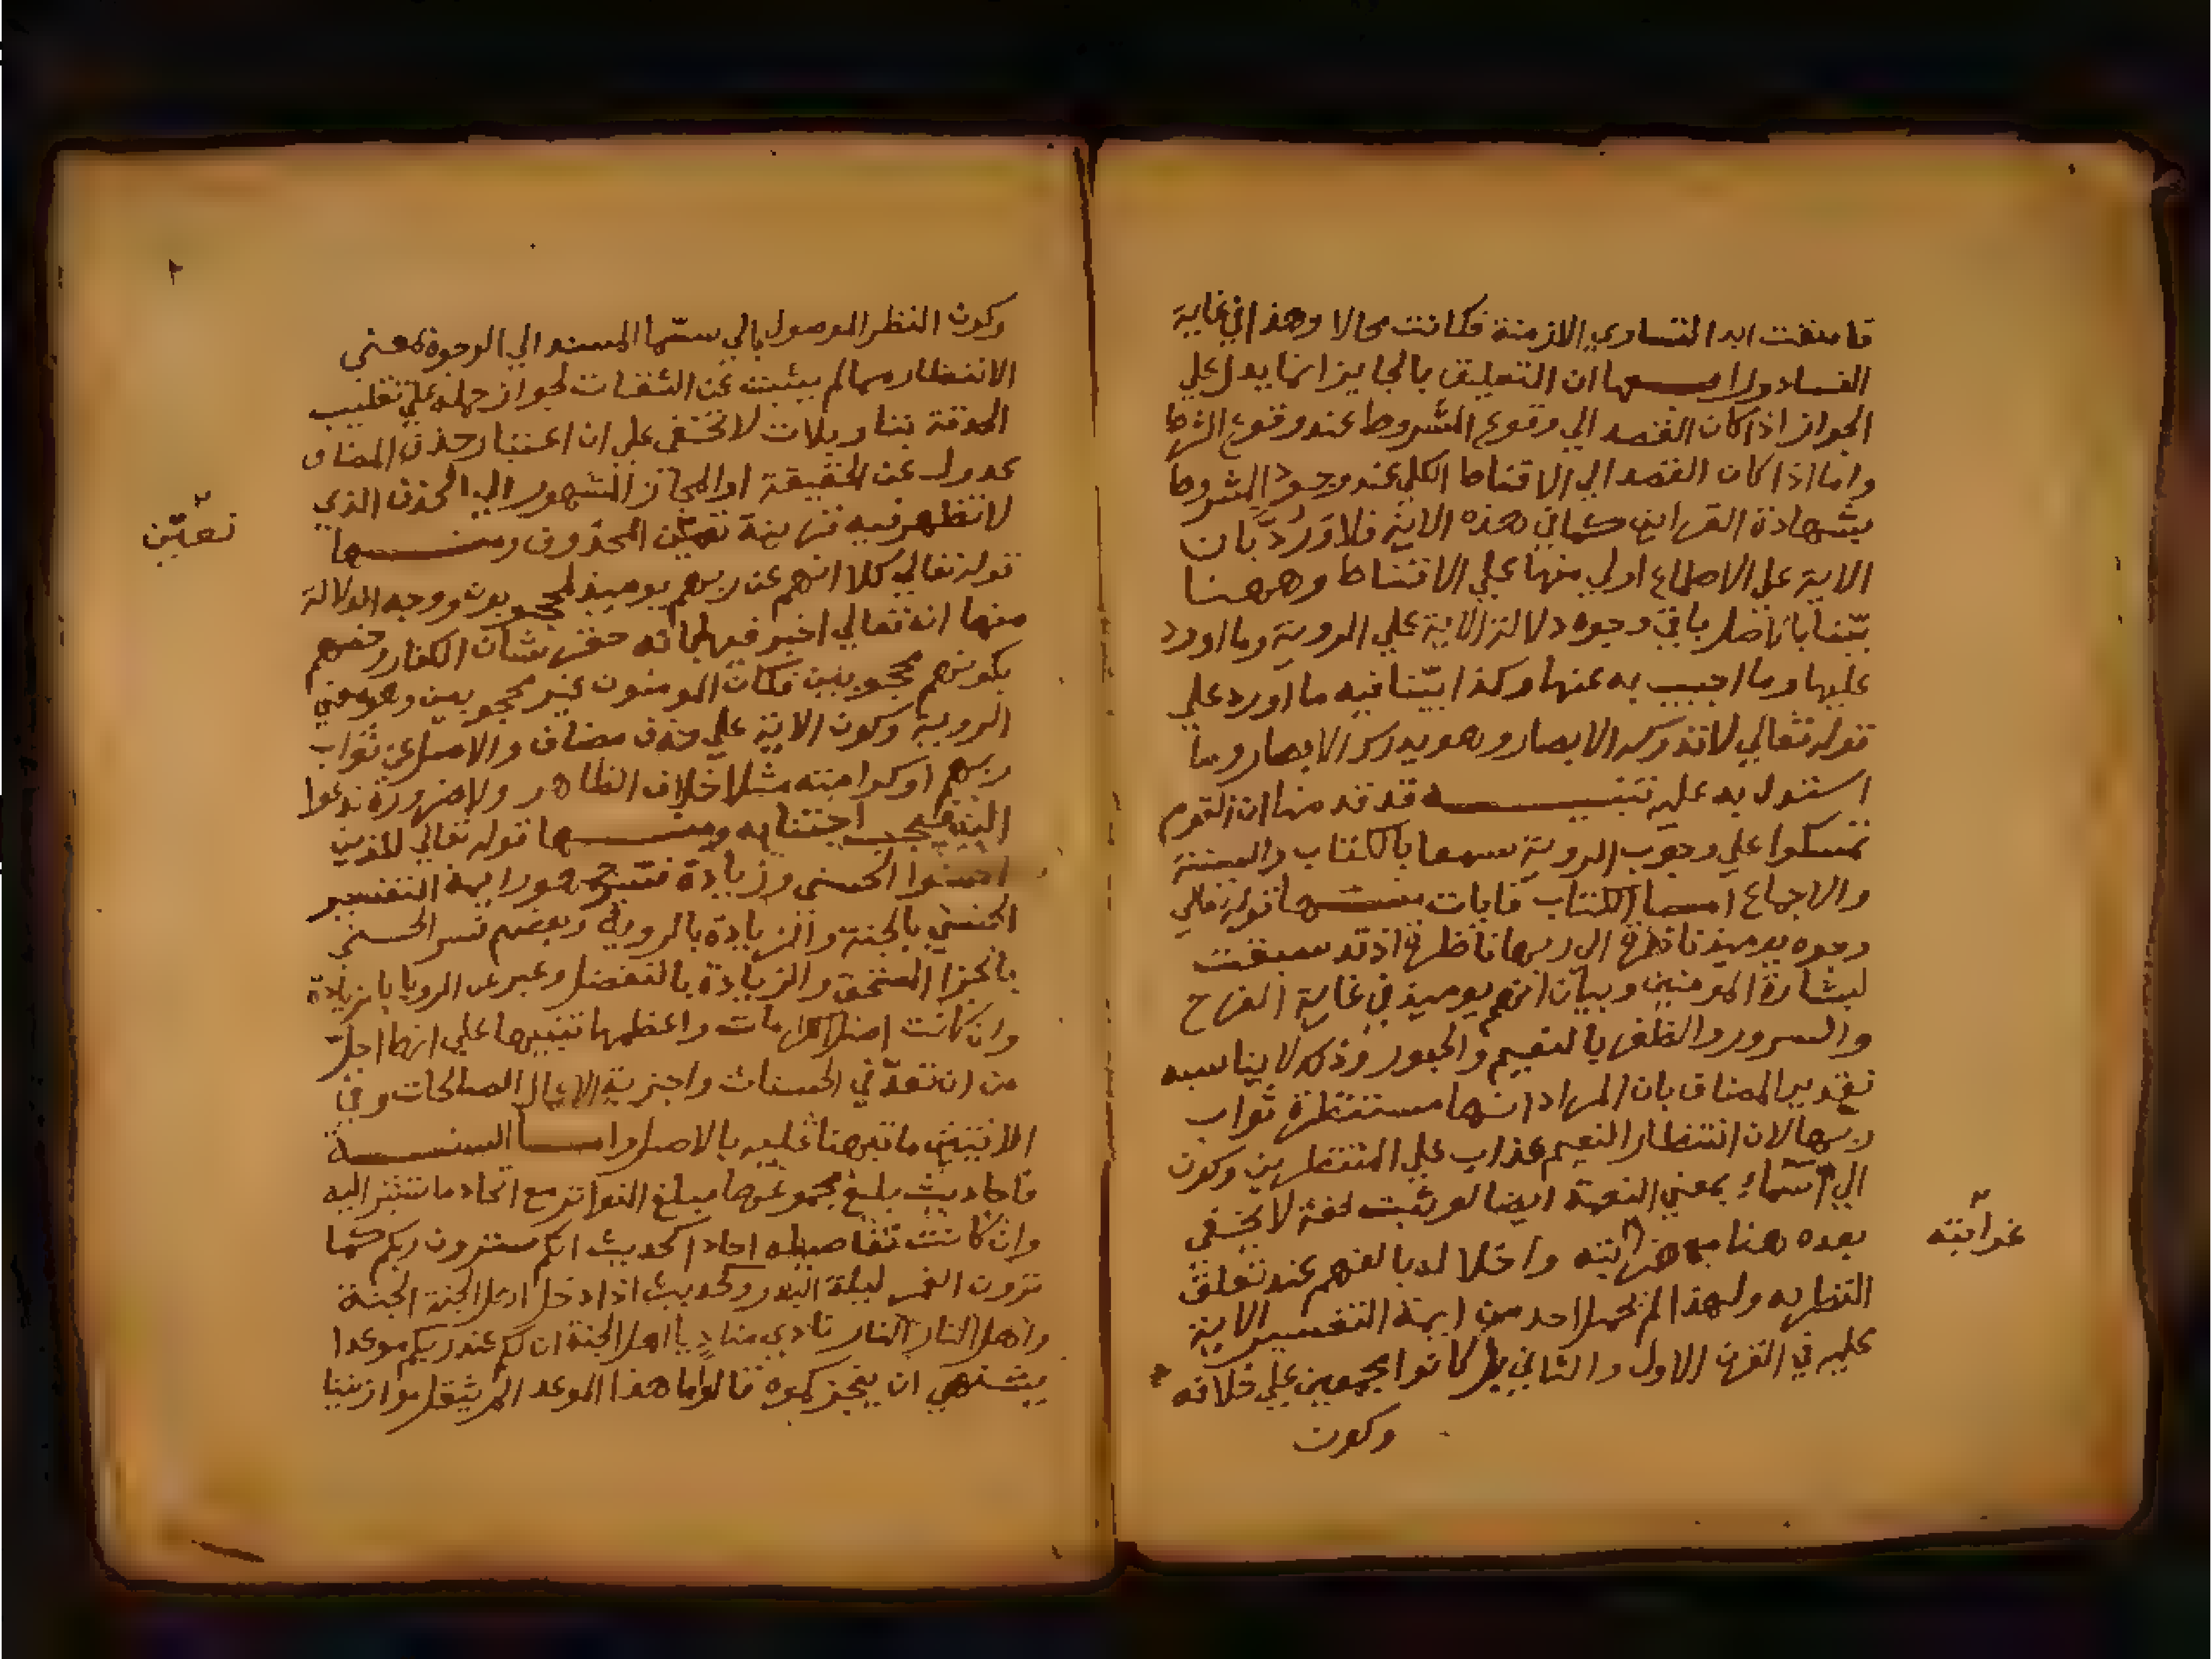 فامتنعت ابدا لتساوي الازمنة فكانت محالا وهذا في غاية
الفساد ورابعها ان التعليق بالجايز انما يدل علي
الجواز اذا كان القصد الي وقوع المشروط عند وقوع الشرط
واما اذا كان القصد الي الاقناط الكلي عند وجود المشروط
بشهادة القراين كما في هذه الاية فلا ورُدّ بان
الاية علي الاطماع اولي منها علي الاقناط وههنا
بيّنا باقي وجوه دلالة الاية علي الروية وما اورد
عليها وما اجيب به عنها وكذا بيّنا فيه ما اورد علي
قوله تعالي لا تدركه الابصار وهو يدرك الابصار وما
استدل به عليه تنبيه قد قدمنا ان القوم
تمسكوا علي وجوب الروية سمعا بالكتاب والسنة
والاجماع اما الكتاب فايات منها قوله تعالي
وجوه يوميذ ناضرة الي ربها ناظرة اذ قد سبقت
لبشارة المومنين وبيان انهم يوميذ في غاية الفرح
والسرور والظفر بالنعيم والحبور وذلك لا يناسبه
تقدير المضاف بان المراد انها منتظرة ثواب
ربها لان انتظار النعيم عذاب علي المنتظرين وكون
الي اسما بمعني النعمة ايضا لو ثبت لغة لا يخفي
بعده هنا غرابته واخلاله بالفهم عند تعلق
النظر به ولهذا لم يحمل احد من ايمة التفسير الاية
عليه في القرن الاول والثاني بل كانوا مجمعين علي خلافه
وكون
غرابته
وكون النظر الموصول بالي سيّما المسند الي الوجوه بمعني
الانتظار مما لم يثبت عن الثقات لجواز حمله علي تقليب
الحدقة بتاويلات لا تخفي علي ان اعتبار حذف المضاف
عدول عن الحقيقة او المجاز المشهور الي الحذف الذي
لا تظهر فيه قرينة تعيّن المحذوف ومنها
قوله تعالي كلا انهم عن ربهم يوميذ لمحجوبون ووجه الدلالة
منها انه تعالي اخبر فيها بانه حقر بشان الكفار وخصهم
بكونهم محجوبين فكان المومنون غير محجوبين وهو معني
الروية وكون الاية علي حذف مضاف والاصل عن ثواب
ربهم او كرامته مثلا خلاف الظاهر ولا ضرورة تدعوا
اليه فيجب اجتنابه ومنها قوله تعالي للذين
احسنوا الحسني وزيادة فسّر جمهور ايمة التفسير
الحسني بالجنة والزيادة بالروية وبعضهم فسر الحسني
بالجزا المستحق والزيادة بالتفضل وعبر عن الرويا بالزيادة
وان كانت اصل الكرامات واعظمها تنبيها علي انها اجلّ
من ان تعدّ في الحسنات واجزية الاعمال الصالحات وفي
الايتين ما نبهنا عليه بالاصل واما السنة
فاحاديث بلغ مجموعها مبلغ التواتر مع اتحاد ما تشير اليه
وان كانت تفاصيله احادا كحديث انكم سترون ربكم كما
ترون القمر ليلة البدر وكحديث اذا دخل اهل الجنة الجنة
واهل النار النار نادي منادٍ يا اهل الجنة ان لكم عند ربكم موعدا
يشتهي ان ينجزكموه قالوا ما هذا الموعد الم يثقل موازيننا
تعيّن